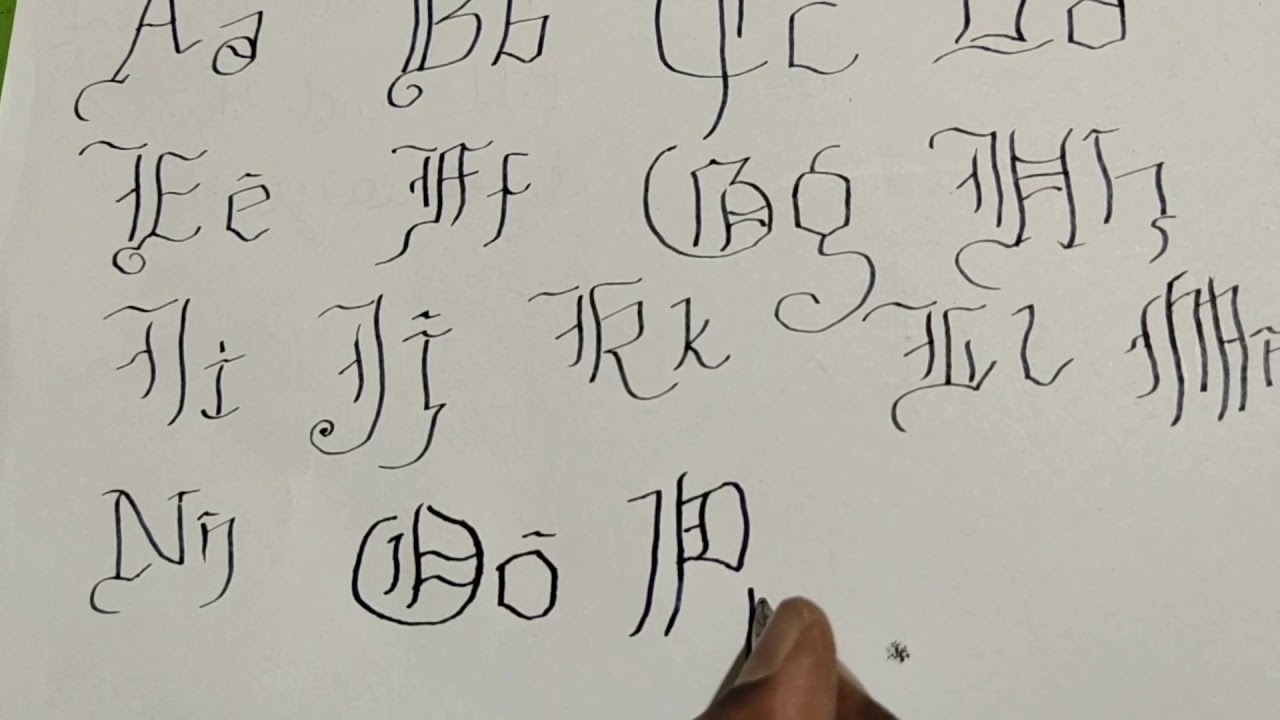 Aa Bb Cc Dd
Ee Ff Gg Hh
Ii Jj Kk Ll M
Nn Oo P